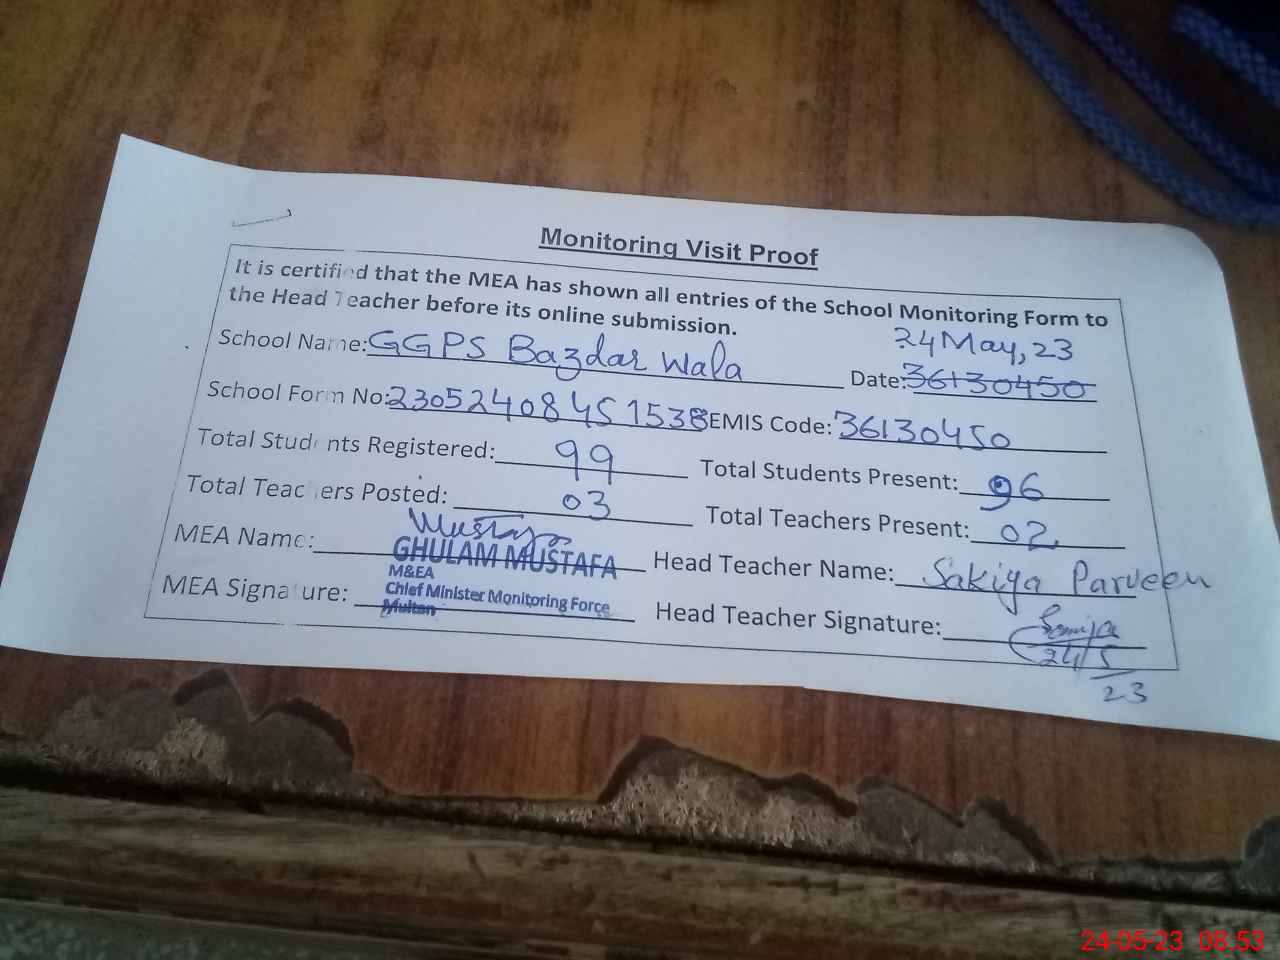 Monitoring Visit Proof
It is certified that the MEA has shown all entries of the School Monitoring Form to
the Head Teacher before its online submission.
24 May, 23
School Name: GGPS Bazdar Wala Date: 36130450
School Form No: 23052408451538 EMIS Code: 36130450
Total Students Registered: 99 Total Students Present: 96
Total Teachers Posted: 03 Total Teachers Present: 02
Mustafa
MEA Name: GHULAM MUSTAFA Head Teacher Name: Sakiya Parveen
M&EA
Chief Minister Monitoring Force
MEA Signature: Multan Head Teacher Signature:
24/5
23
24-05-23 08.53